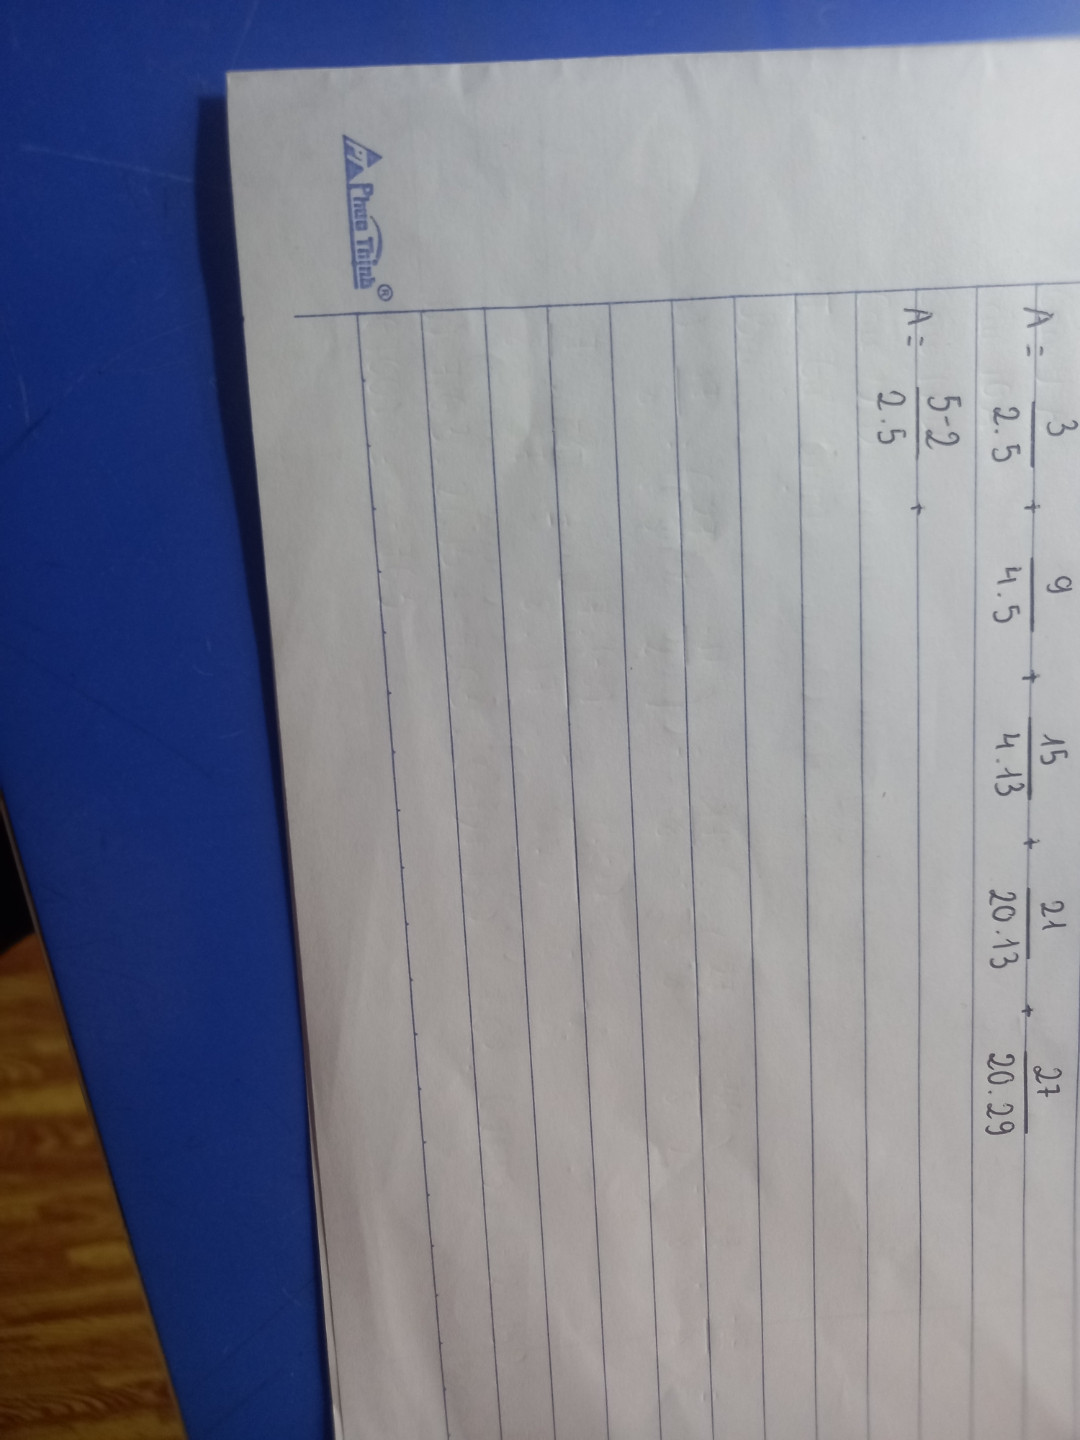 Phuc Thịnh®
A = 3/2.5 + 9/4.5 + 15/4.13 + 21/20.13 + 27/20.29
A = 5-2/2.5 +